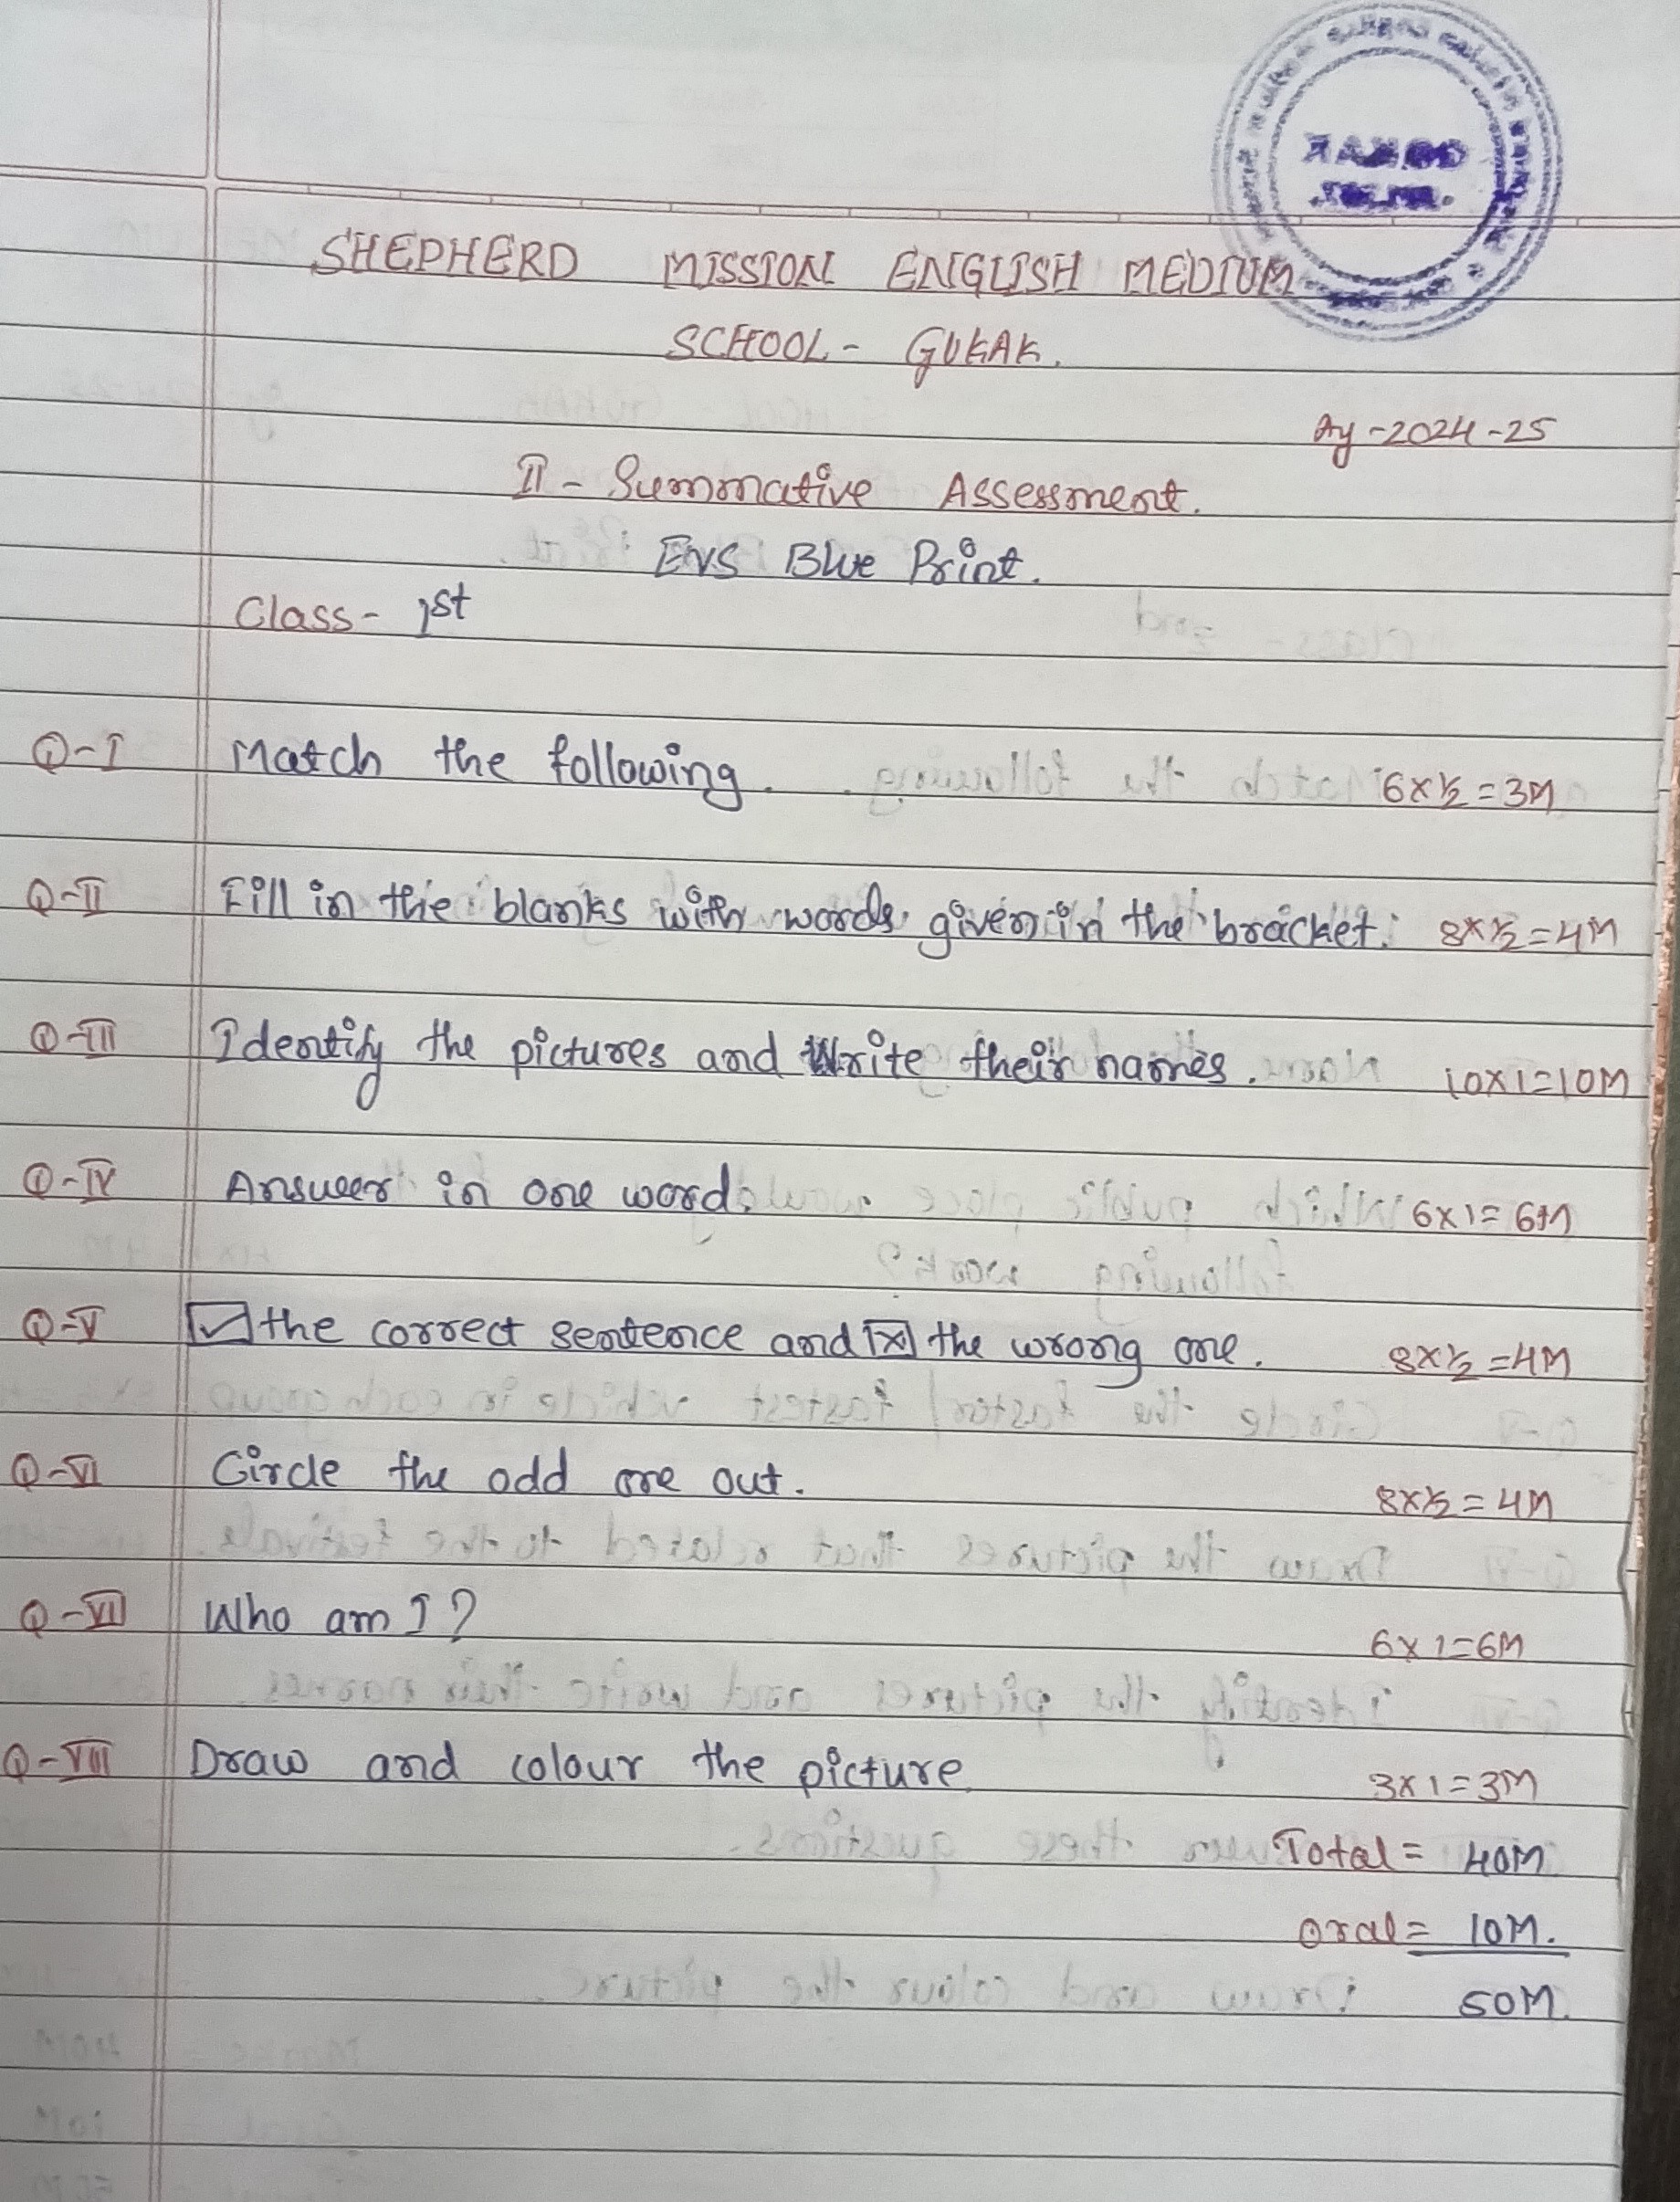 SHEPHERD MISSION ENGLISH MEDIUM
SCHOOL - GOKAK.
Ay-2024-25
II - Summative Assessment.
EVS Blue Print.
Class- 1st
Q-I Match the following. 6x½=3M
Q-II Fill in the blanks with words given in the bracket. 8x½=4M
Q-III Identify the pictures and Write their names. 10x1=10M
Q-IV Answer in one word. 6x1=6M
Q-V ☑ the correct sentence and ☒ the wrong one. 8x½=4M
Q-VI Circle the odd one out. 8x½=4M
Q-VII Who am I? 6x1=6M
Q-VIII Draw and colour the picture. 3x1=3M
Total = 40M
Oral = 10M.
50M.